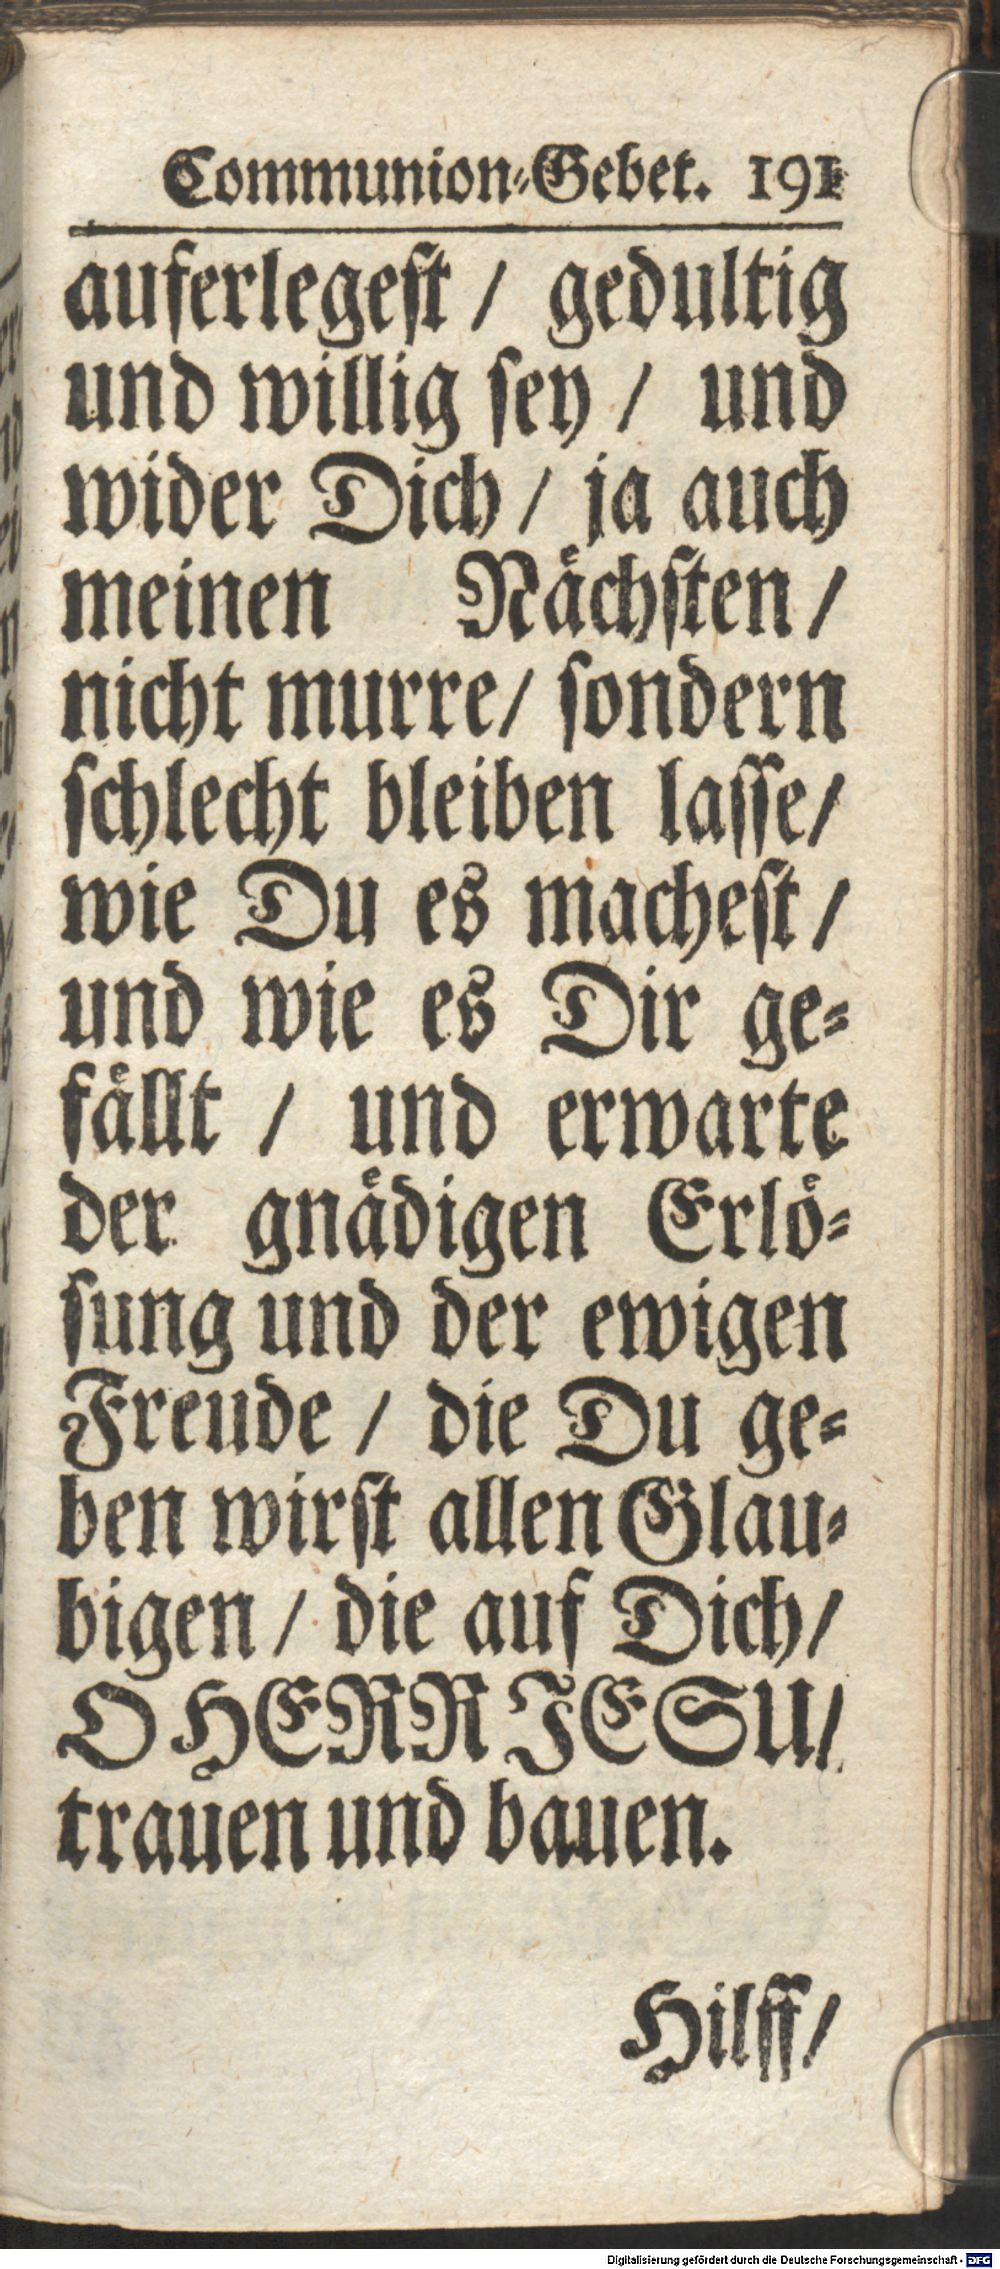 Communion-Gebet. 191
auferlegeſt / gedultig
und willig ſey / und
wider Dich / ja auch
meinen Naͤchſten /
nicht murre / ſondern
ſchlecht bleiben laſſe /
wie Du es macheſt /
und wie es Dir ge-
faͤllt / und erwarte
der gnaͤdigen Erloͤ-
ſung und der ewigen
Freude / die Du ge-
ben wirſt allen Glau-
bigen / die auf Dich /
O HERR JESU /
trauen und bauen.
Hilff /
Digitalisierung gefördert durch die Deutsche Forschungsgemeinschaft - DFG